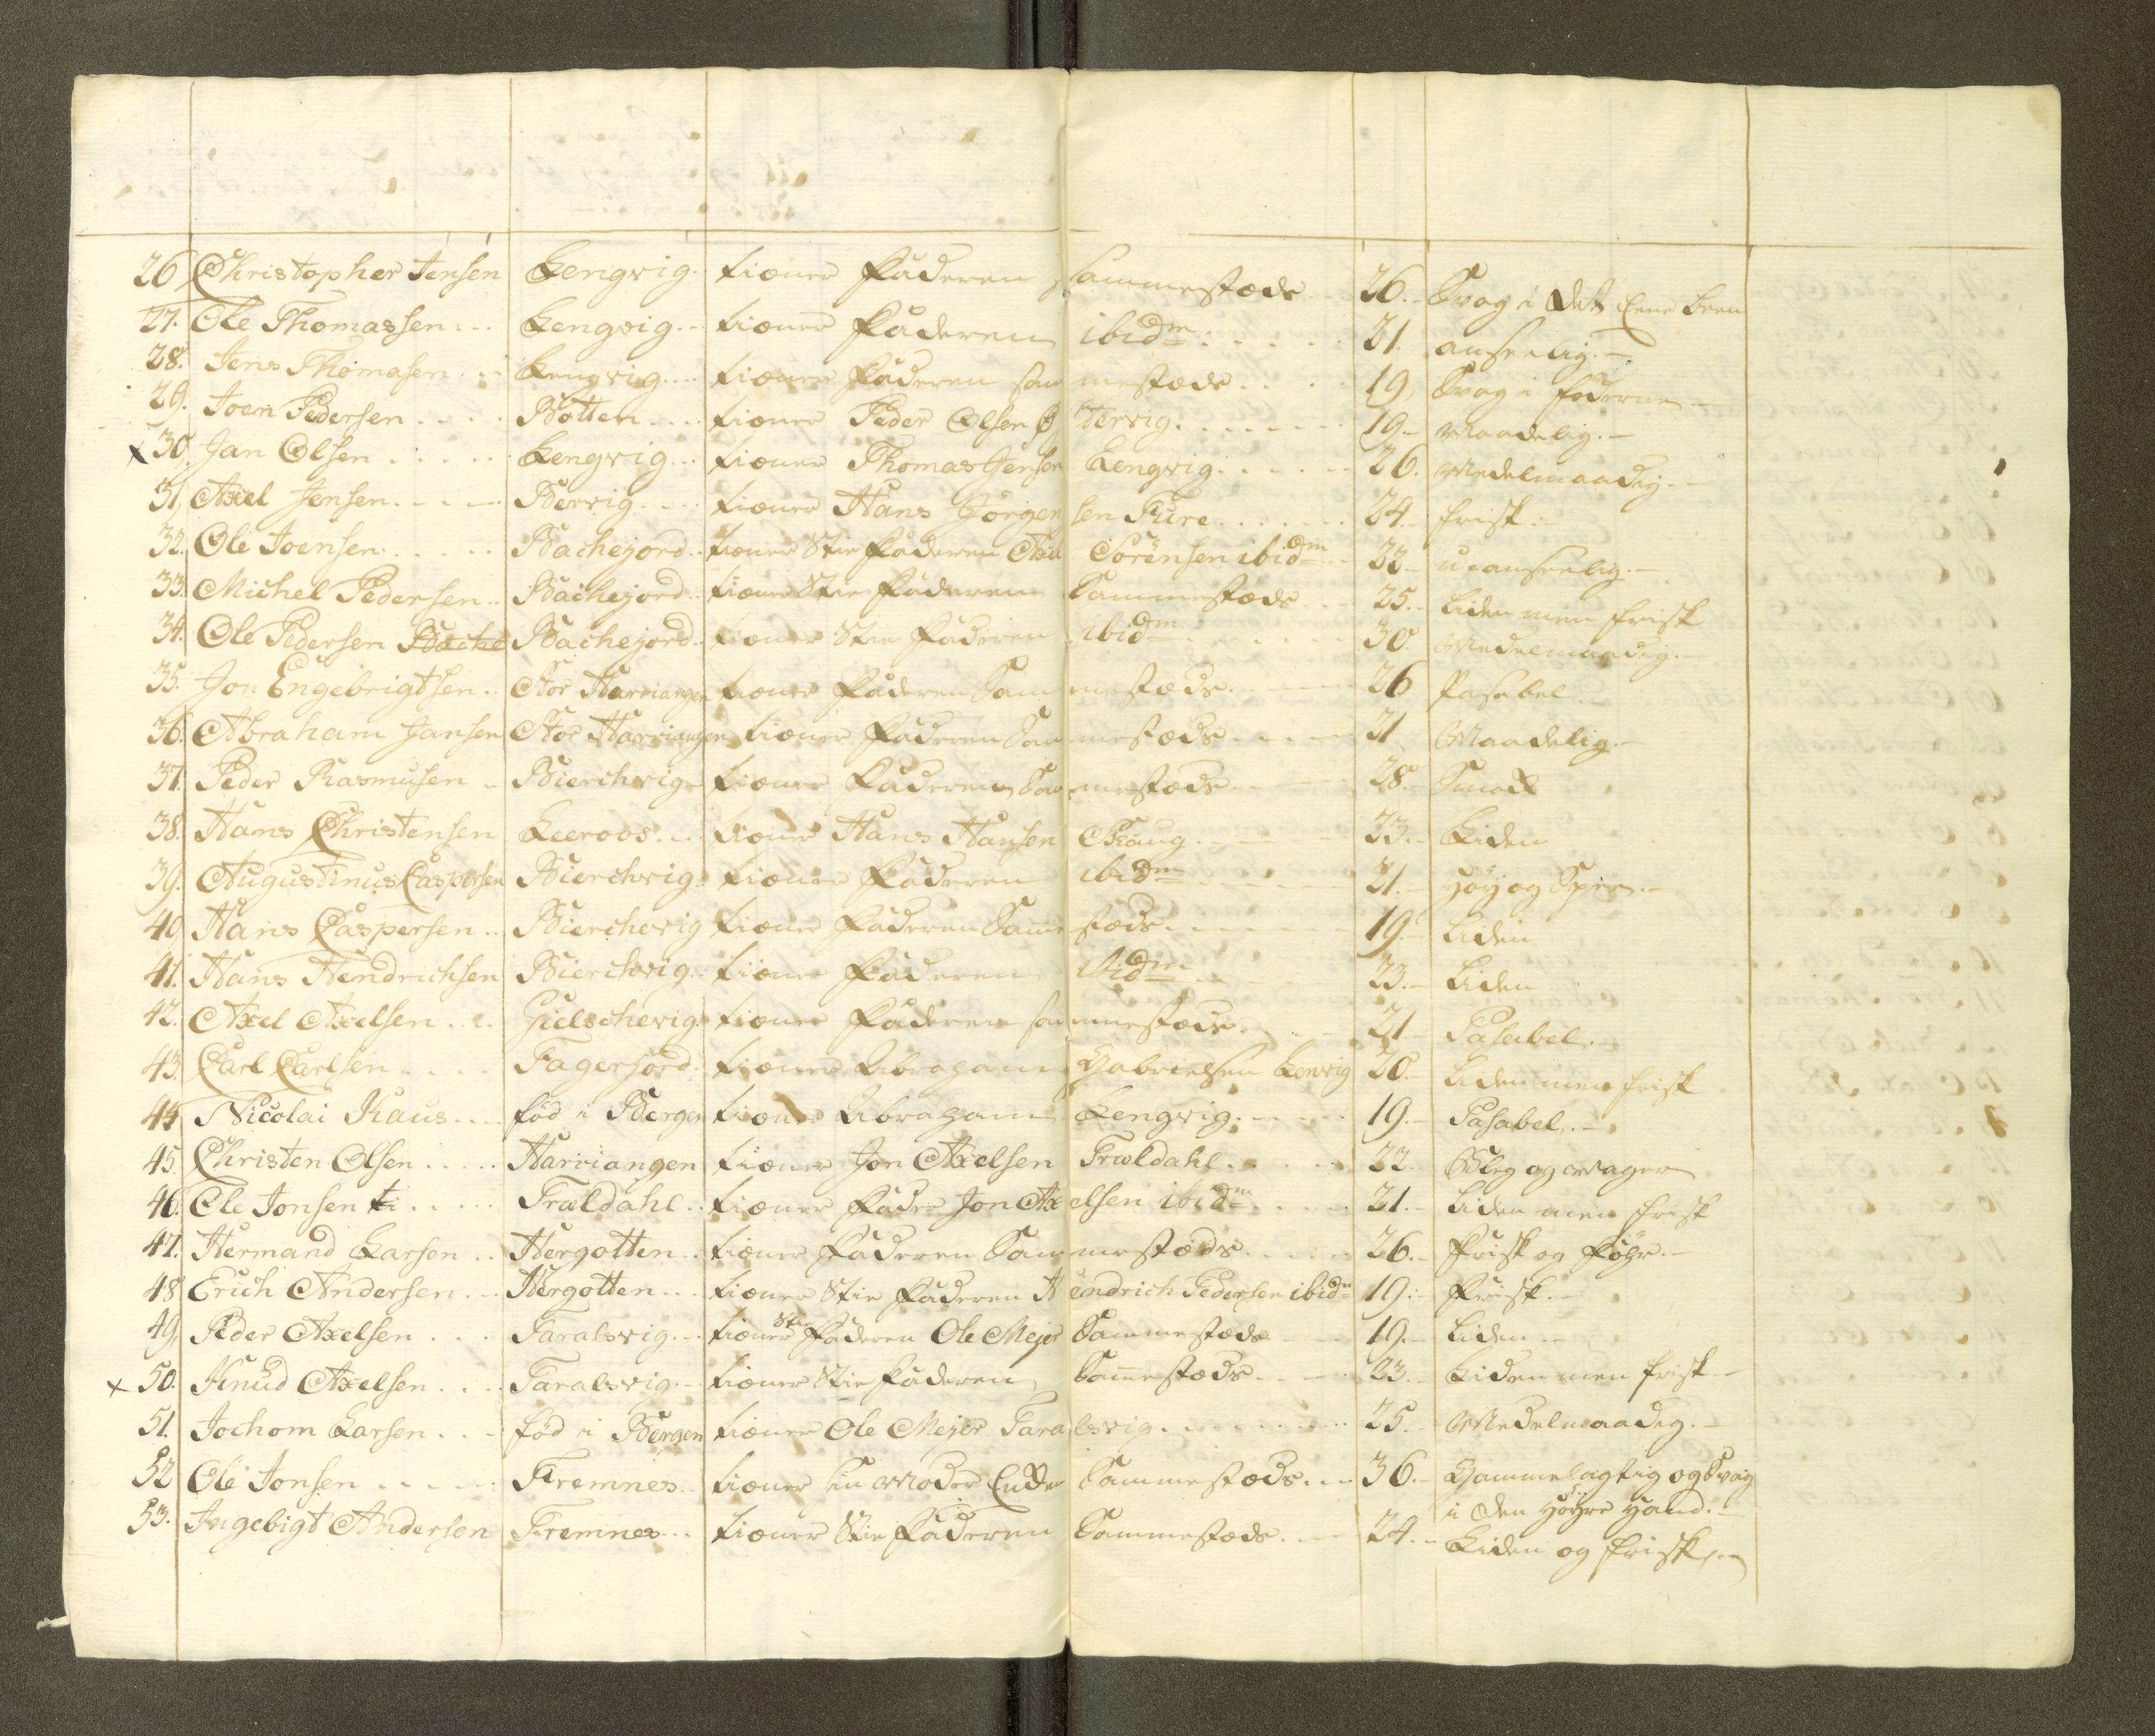 26. Christopher Jensen Lengvig. tiæner Faderen sammestæds 26. Svag i det Eene Been
27. Ole Thomassen Lengvig tiæner Faderen ibidm 21. anseelig.
28. Jens Thomasen Lengvig tiæner Faderen sammestæds 19. Svag i Föderne
29. Joen Pedersen Botten tiæner Peder Olsen 19. Maadelig.
x 30. Jan Olsen Lengvig tiæner Thomas Jensen Lengvig 26. Medelmaadig.
31. Axel Jensen Bervig tiæner Hans Jörgensen Fure 24. frisk.
32. Ole Joensen Bachejord tiæner Stie Faderen Sörensen ibidm 22. uanseelig.
33. Michel Pedersen Bachejord tiæner Stie Faderen Sammestæds 25. Liden men frisk
34. Ole Pedersen Bache Bachejord tiæner Stie Faderen ibidm 30. Medelmaadig.
35. Jon Engebrigtsen Stor Harriangen tiæner Faderen Sammestæds 26 Pasabel
36. Abraham Jansen Stor Harriangen tiæner Faderen Sammestæds 21 Maadelig.
37. Peder Rasmusen Bierchvig tiæner Faderen Sammestæds 28. Smock
38. Hans Christensen Leeroos tiæner Hans Hansen 23. Liden
39. Augustinus Caspersen Bierchvig tiæner Faderen ibidm 21. Höy og Spee.
40. Hans Caspersen Bierchvig tiæner Faderen Samestæds 19. Liden
41. Hans Hendrichsen Bierchvig tiæner Faderen ibidm 23. Liden
42. Axel Axelsen Gielschevig tiæner Faderen sammestæds 21 Pasabel.
43. Carl Carlsen Fagerjord tiæner Abraham Gabrielsen 20. Liden men frisk
44. Nicolai Kaus föd i Bergen tiæner Abraham Lengvig 19. Pasabel.
45. Christen Olsen Harriangen tiæner Jon Axelsen Træeldahl 22. Bleg og Mager
46. Ole Jonsen Træeldahl tiæner Fader Jon Axelsen ibidm 21. Liden men frisk
47. Hermand Larsen Hergotten tiæner Faderen Sammestæds 26. Frisk og Föhr.
48 Erich Andersen Hergotten tiæner Stie Faderen Hendrich Pedersen ibidm 19. Frisk.
49. Peder Axelsen Taralsvig tiæner Stie Faderen Ole Mejer Sammestæds 19. Liden
x 50. Knud Axelsen Taralsvig tiæner Stie Faderen Samestæds 23. Liden men frisk
51. Jochom Larsen föd i Bergen tiæner Ole Mejer Taralsvig 25. Medelmaadig.
52 Ole Jonsen Fremnes tiæner sin Moder Sammestæds 36. Gammelagtig og Svag
i den Höyre Haand.
53. Ingebigt Andersen Fremnes tiæner Stie Faderen Sammestæds 24. Liden og frisk